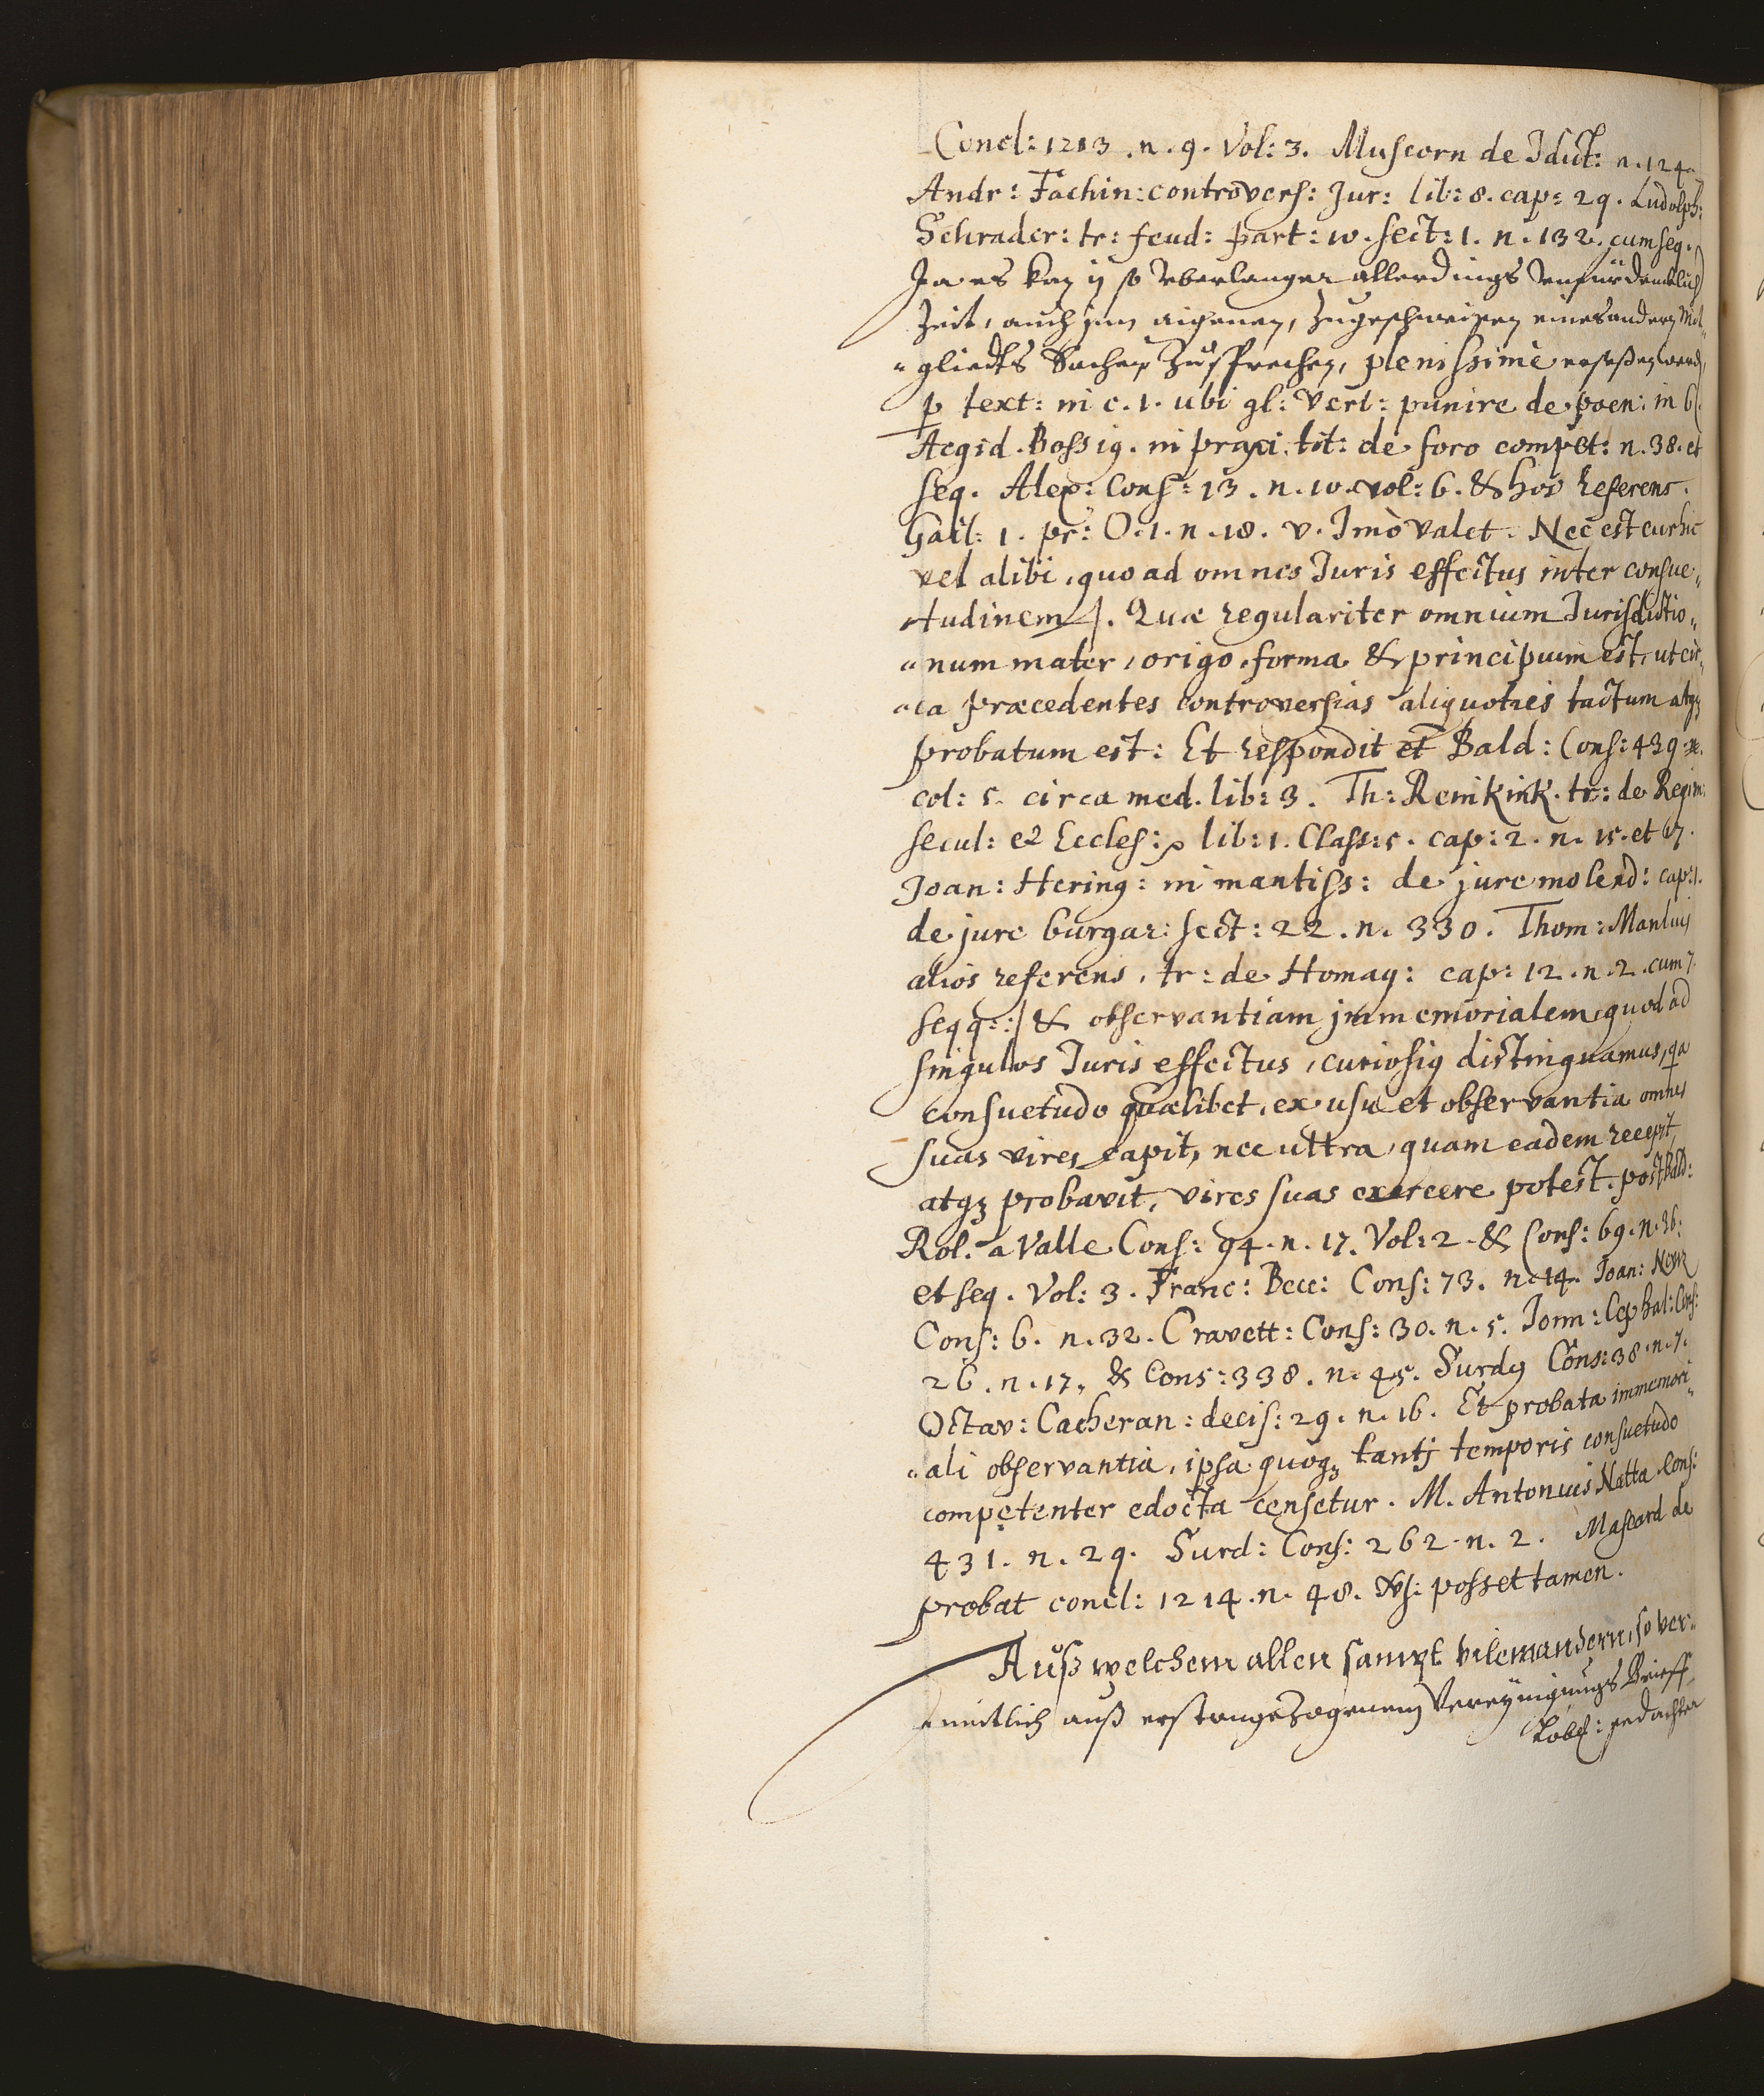 Concl: 1213. n. 9. Vol: 3. Muscorn de Jdict: n. 124.
Andr: Fachin: controvers: Jur: lib: 8. cap: 29. Ludolph:
Schrader: tr: feud: part: 10. sect: 1. n. 132. cum seq.
Ja es kan ij so vberlanger allerdings vnfürdencklich
Zeit, auch jnn aigenen, Zugeschweigen eines andern Mit„
„gliedts Sachen Zusprechen, plenissimè ersessen werd
p text: in c. 1. ubi gl: Vert: punire de poen: in 6.
Aegid. Bossig. in praxi. tit: de foro compet: n. 38. et
seq. Alex: Cons: 13. n. 10. vol: 6. & hos referens.
Gail: 1. pr: O. 1. n. 18. v. Imò valet. Nec est cur hic
vel alibi, quoad omnes Juris effectus inter consue„
tudinem /. Quæ regulariter omnium Jurisdictio„
„num mater, origo, forma & principium est, ut cir„
„ca præcedentes controversias aliquoties tactum atqz
probatum est: Et respondit et Bald: Cons: 439.
col: 5. circa med. lib: 3. Th: Reinkink. tr: de Regim:
secul: et Eccles: lib: 1. Class: 5. cap: 2. n. 15. et 17.
Joan: Hering: in mantiss: de jure molend: cap: 1.
de jure burgar: sect: 22. n. 330. Thom: Manlius
alios referens, tr: de Homag: cap: 12. n. 2. cum
seqq: :/ & observantiam jmmemorialem quod ad
singulos Juris effectus, curiosig distinguamus, qa
consuetudo quælibet, ex usu et observantia omnes
suas vires capit, nec ultra, quam eadem recepit,
atqz probavit, vires suas exercere potest. post Bald:
Rol. a Valle Cons: 94. n. 17. Vol: 2. & Cons: 69. n. 26.
et seq. Vol: 3. Franc: Becc: Cons: 73. n. 14. Joan:
Cons: 6. n. 32. Cravett: Cons: 30. n. 5. Joan: Cephal: Cons:
26. n. 17. & Cons: 338. n. 45. Surdg Cons: 38. n. 7.
Octav: Cacheran: decis: 29. n. 16. Et probata immemori„
„ali observantia, ipsa quoqz tantj temporis consuetudo
competenter edocta censetur. M. Antonius Natta Cons:
431. n. 29. Surd: Cons: 262. n. 2. Mascard de
probat concl: 1214. n. 48. vs: posset tamen.
Auß welchem allen sampt vilem andern, so ver„
„mütlich auß erstangezogenem Vereynigungs Brieff
Löbl: gedachter